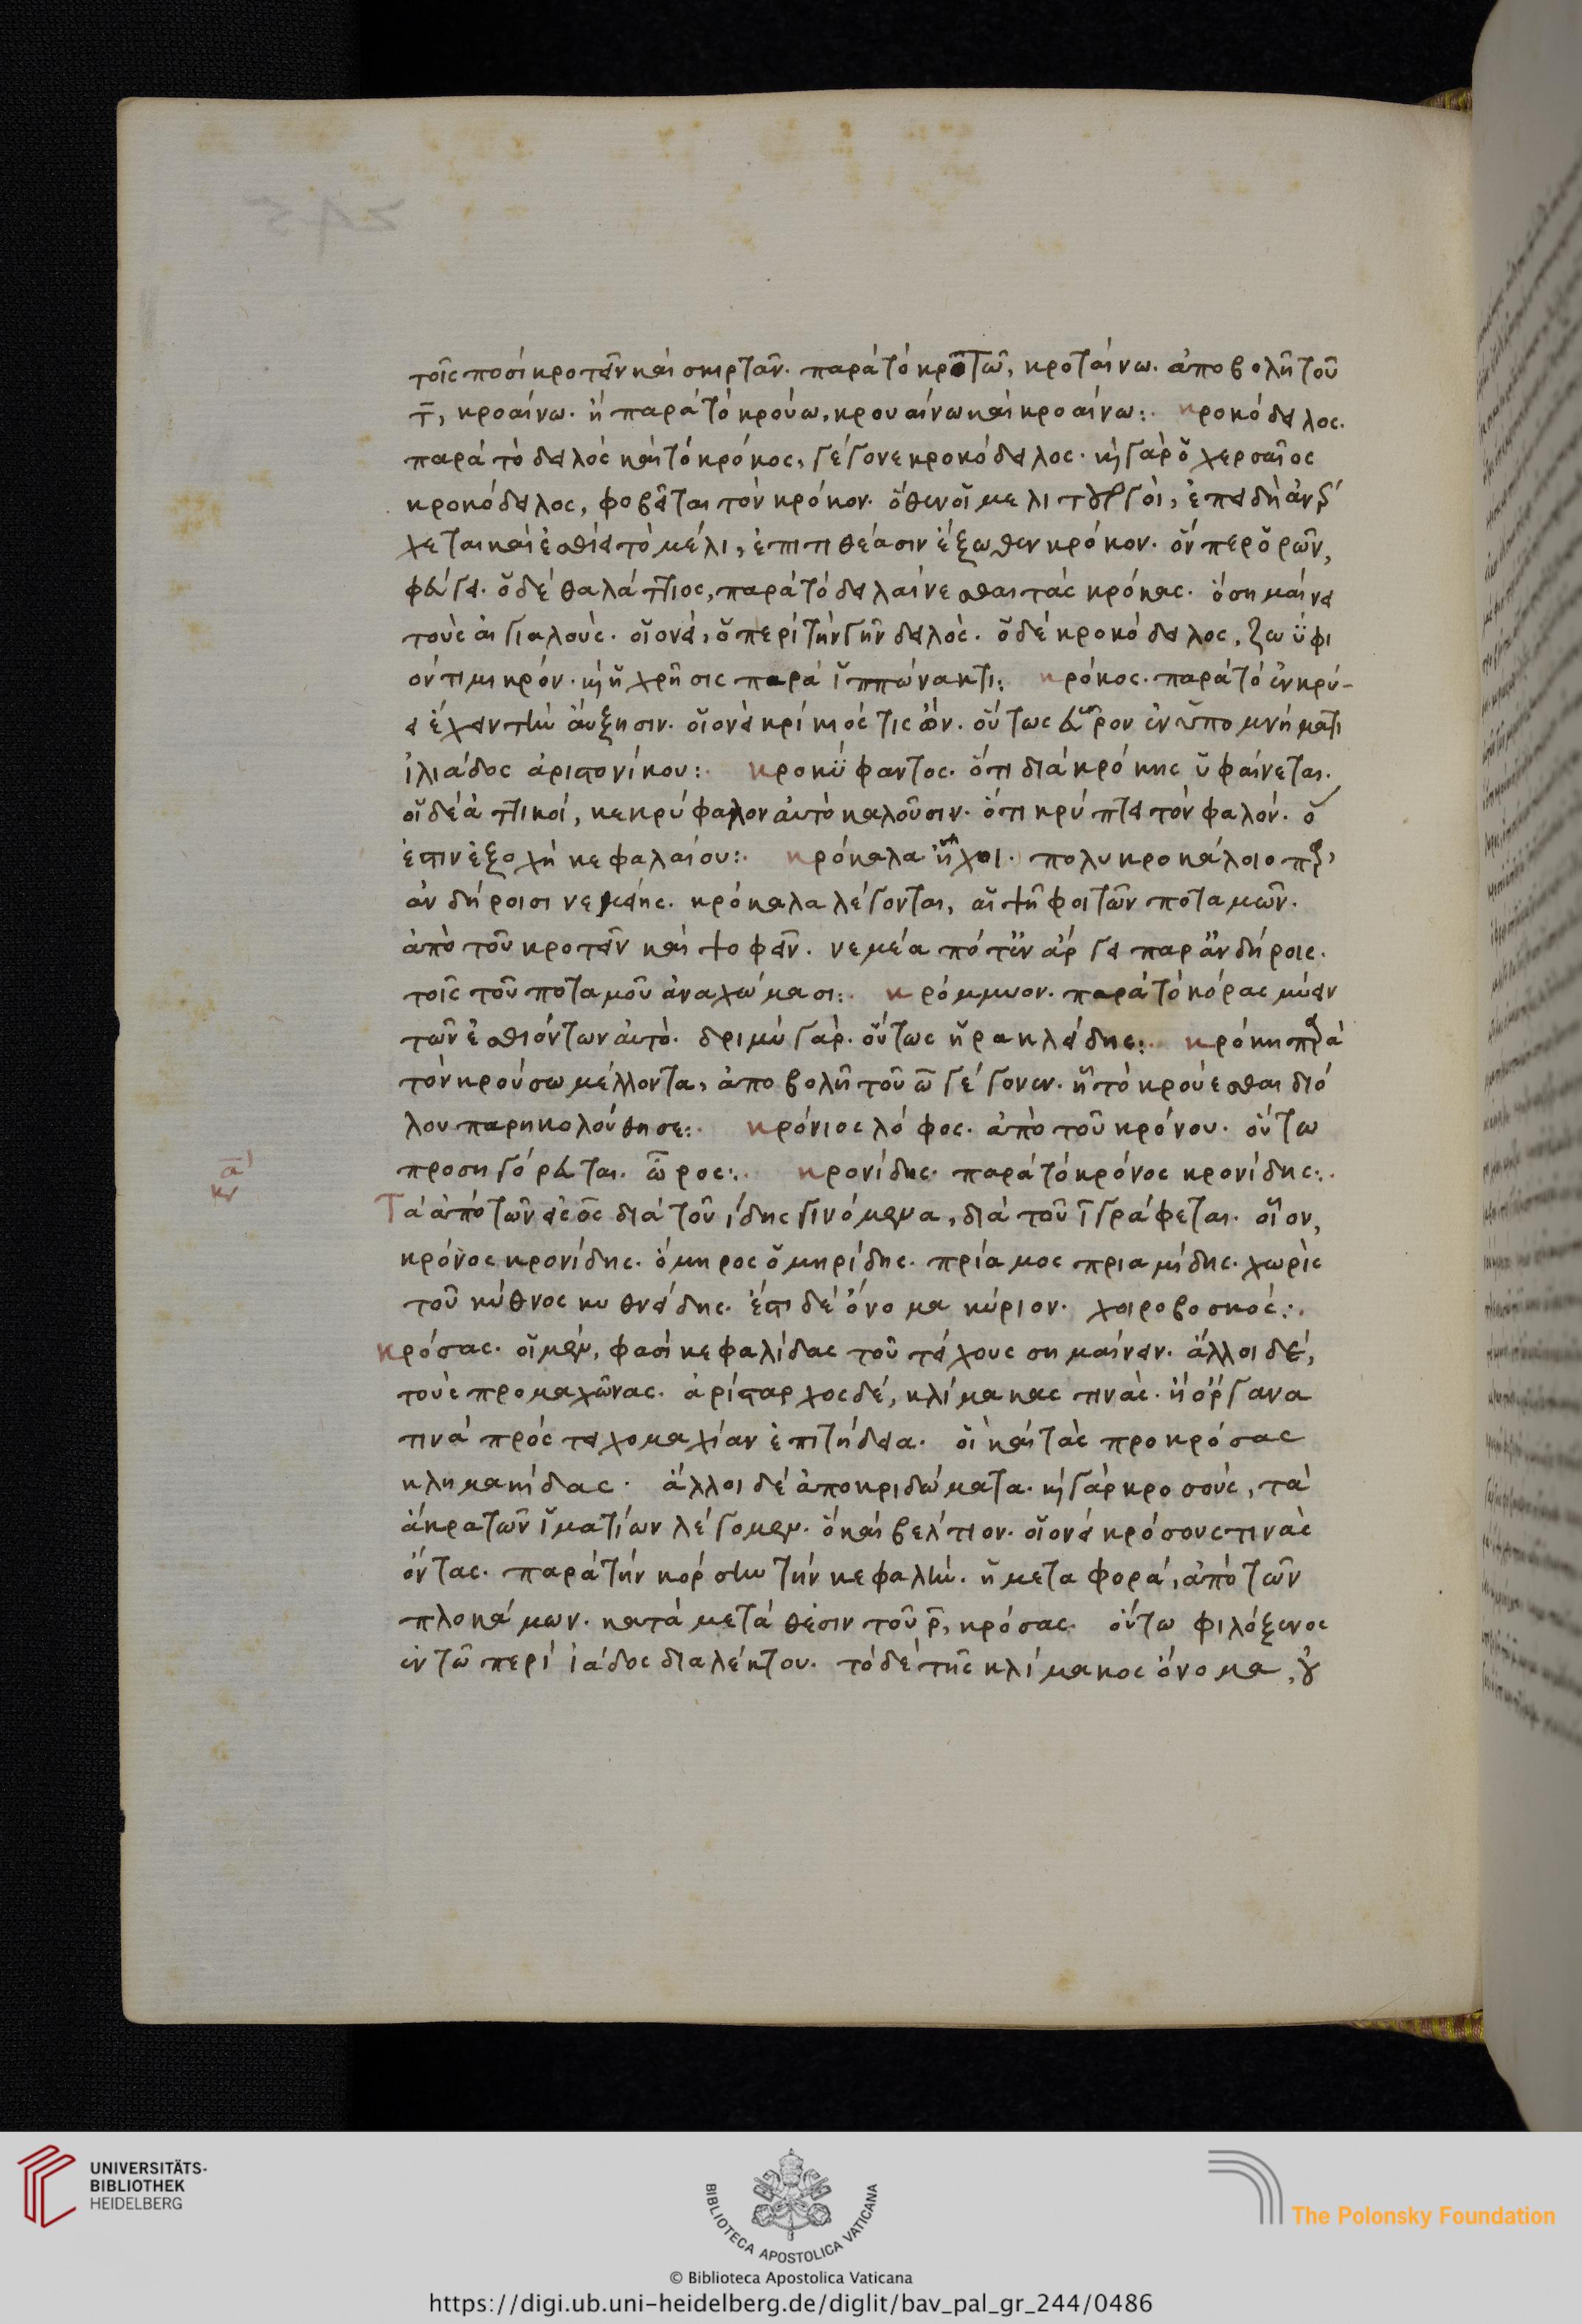 245
τοῖς ποσὶ κροτεῖν καὶ σκιρτᾶν. παρὰ τὸ κροτῶ, κροταίνω. ἀποβολῆ τοῦ
τ, κροαίνω. ἢ παρὰ τὸ κρούω, κρουαίνω καὶ κροαίνω:. κροκόδειλος.
παρὰ τὸ δειλὸς καὶ τὸ κρόκος, γέγονε κροκόδειλος. καὶ γὰρ ὁ χερσαῖος
κροκόδειλος, φοβεῖται τὸν κρόκον. ὅθεν οἱ μελιτουργοὶ, ἐπειδὴ ἀνέρ
χεται καὶ ἐσθίει τὸ μέλι, ἐπιτιθέασιν ἔξωθεν κρόκον. ὅνπερ ὁρῶν,
φεύγει. ὁ δὲ θαλάττιος, παρὰ τὸ δειλαίνεσθαι τὰς κρόκας. ὃ σημαίνει
τοὺς αἰγιαλούς. οἱονεὶ, ὁ περὶ τὴν γῆν δειλός. ὁ δὲ κροκόδειλος, ζωΰφι
όν τι μικρόν. καὶ ἡ χρῆσις παρὰ ἱππώνακτι: κρόκος. παρὰ τὸ ἐν κρύ-
ει ἔχειν τὴν αὔξησιν. οἱονεὶ κρίκιός τις ὤν. οὕτως εὗρον ἐν ὑπομνήματι
ἰλιάδος ἀριστονίκου:. κροκΰφαντος. ὅτι διὰ κρόκης ὑφαίνεται.
οἱ δὲ ἀττικοί, κεκρύφαλον αὐτὸ καλοῦσιν. ὅτι κρύπτει τὸν φαλόν. ὅ
ἐστιν ἐξοχὴ κεφαλαίου:. κρόκαλα πολυκροκάλοιο παρ
ἀνδήροισι νεμείης. κρόκαλα λέγονται, αἱ ψῆφοι τῶν ποταμῶν.
ἀπὸ τοῦ κροτεῖν καὶ ψοφεῖν. παρ ἀνδήροις.
τοῖς τοῦ ποταμοῦ ἀναχώμασι:. κρόμμυον. παρὰ τὸ κόρας μύειν
τῶν ἐσθιόντων αὐτό. δριμὺ γάρ. οὕτως ἡρακλείδης:. κρόκη παρὰ
τὸν κρούσω μέλλοντα, ἀποβολῆ τοῦ ω γέγονεν. ἢ τὸ κρούεσθαι διό
λου παρηκολούθησε:. κρόνιος λόφος. ἀπὸ τοῦ κρόνου. οὕτω
προσηγόρευται. ὦρος:. κρονίδης. παρὰ τὸ κρόνος κρονίδης:.
Τὰ ἀπὸ τῶν εἰς ος διὰ τοῦ ίδης γινόμενα, διὰ τοῦ ι γράφεται. οἷον,
κρόνος κρονίδης. ὅμηρος ὁμηρίδης. πρίαμος πριαμίδης. χωρὶς
τοῦ κύθνος κυθνείδης. ἔστι δὲ ὄνομα κύριον. χοιροβοσκός:.
κρόσας. οἱ μὲν, φασὶ κεφαλίδας τοῦ τείχους σημαίνειν. ἄλλοι δέ,
τοὺς προμαχῶνας. ἀρίσταρχος δέ, κλίμακας τινὰς. ἢ ὄργανα
τινὰ πρὸς τειχομαχίαν ἐπιτήδεια. οἱ καὶ τὰς προκρόσας
κλημακίδας. ἄλλοι δὲ ἀποκριδώματα. καὶ γὰρ κροσοὺς, τὰ
ἄκρα τῶν ἱματίων λέγομεν. ὃ καὶ βέλτιον. οἱονεὶ κρόσους τινὰς
ὄντας. παρὰ τὴν κόρσην τὴν κεφαλήν. ἡ μεταφορά, ἀπὸ τῶν
πλοκάμων. κατὰ μετάθεσιν τοῦ ρ, κρόσας. οὕτω φιλόξενος
ἐν τῶ περὶ ἰάδος διαλέκτου. τὸ δὲ τῆς κλίμακος ὄνομα, οὐ
UNIVERSITÄTS-
BIBLIOTHEK
HEIDELBERG
BIBLIOTECA APOSTOLICA VATICANA
The Polonsky Foundation
© Biblioteca Apostolica Vaticana
https://digi.ub.uni-heidelberg.de/diglit/bav_pal_gr_244/0486